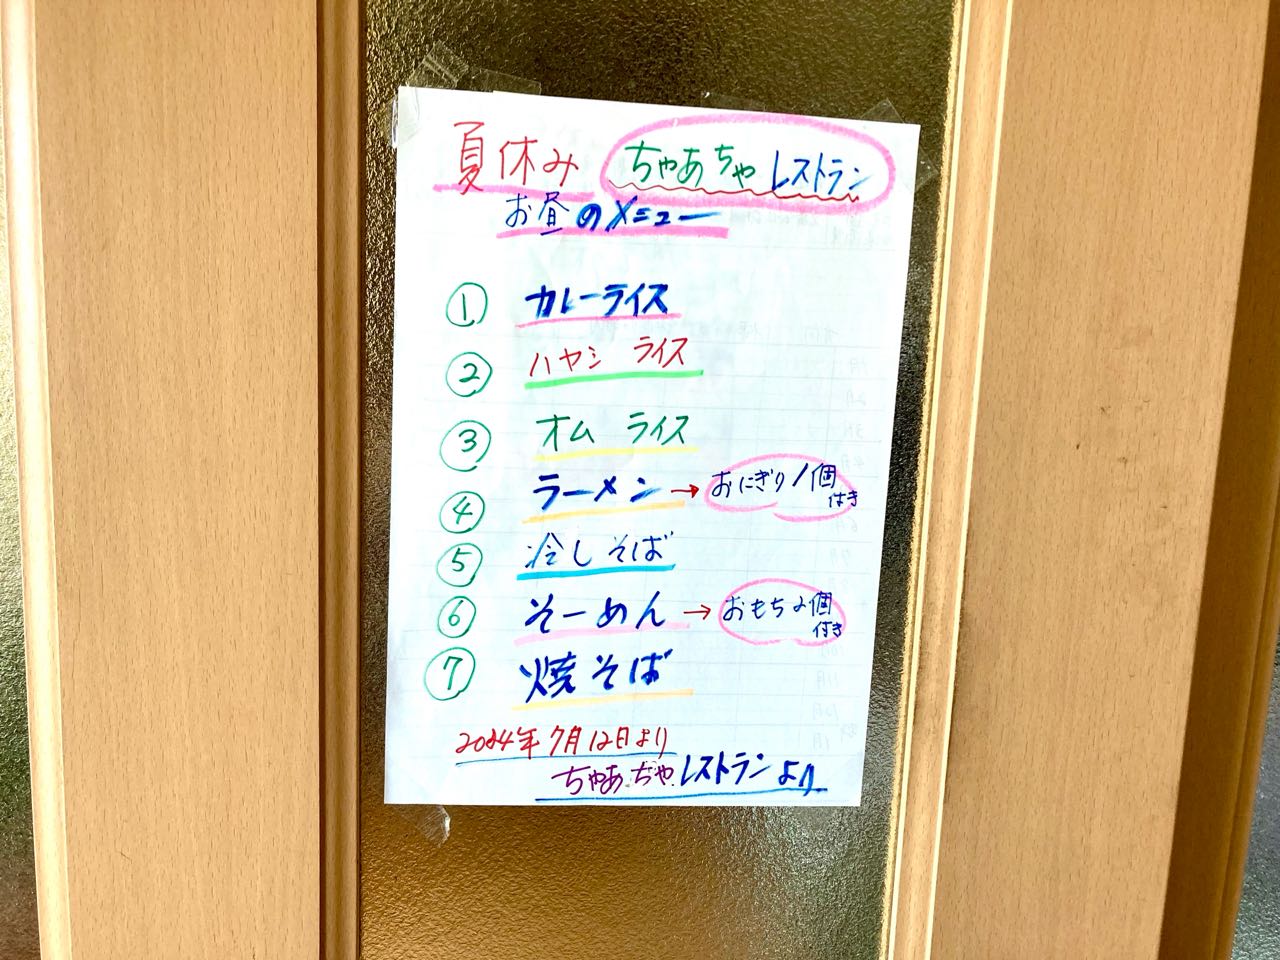 夏休み ちゃあちゃレストラン
お昼のメニュー
① カレーライス
② ハヤシ ライス
③ オム ライス
④ ラーメン → おにぎり1個付き
⑤ 冷しそば
⑥ そーめん → おもち2個付き
⑦ 焼そば
2024年7月12日より
ちゃあちゃレストランより